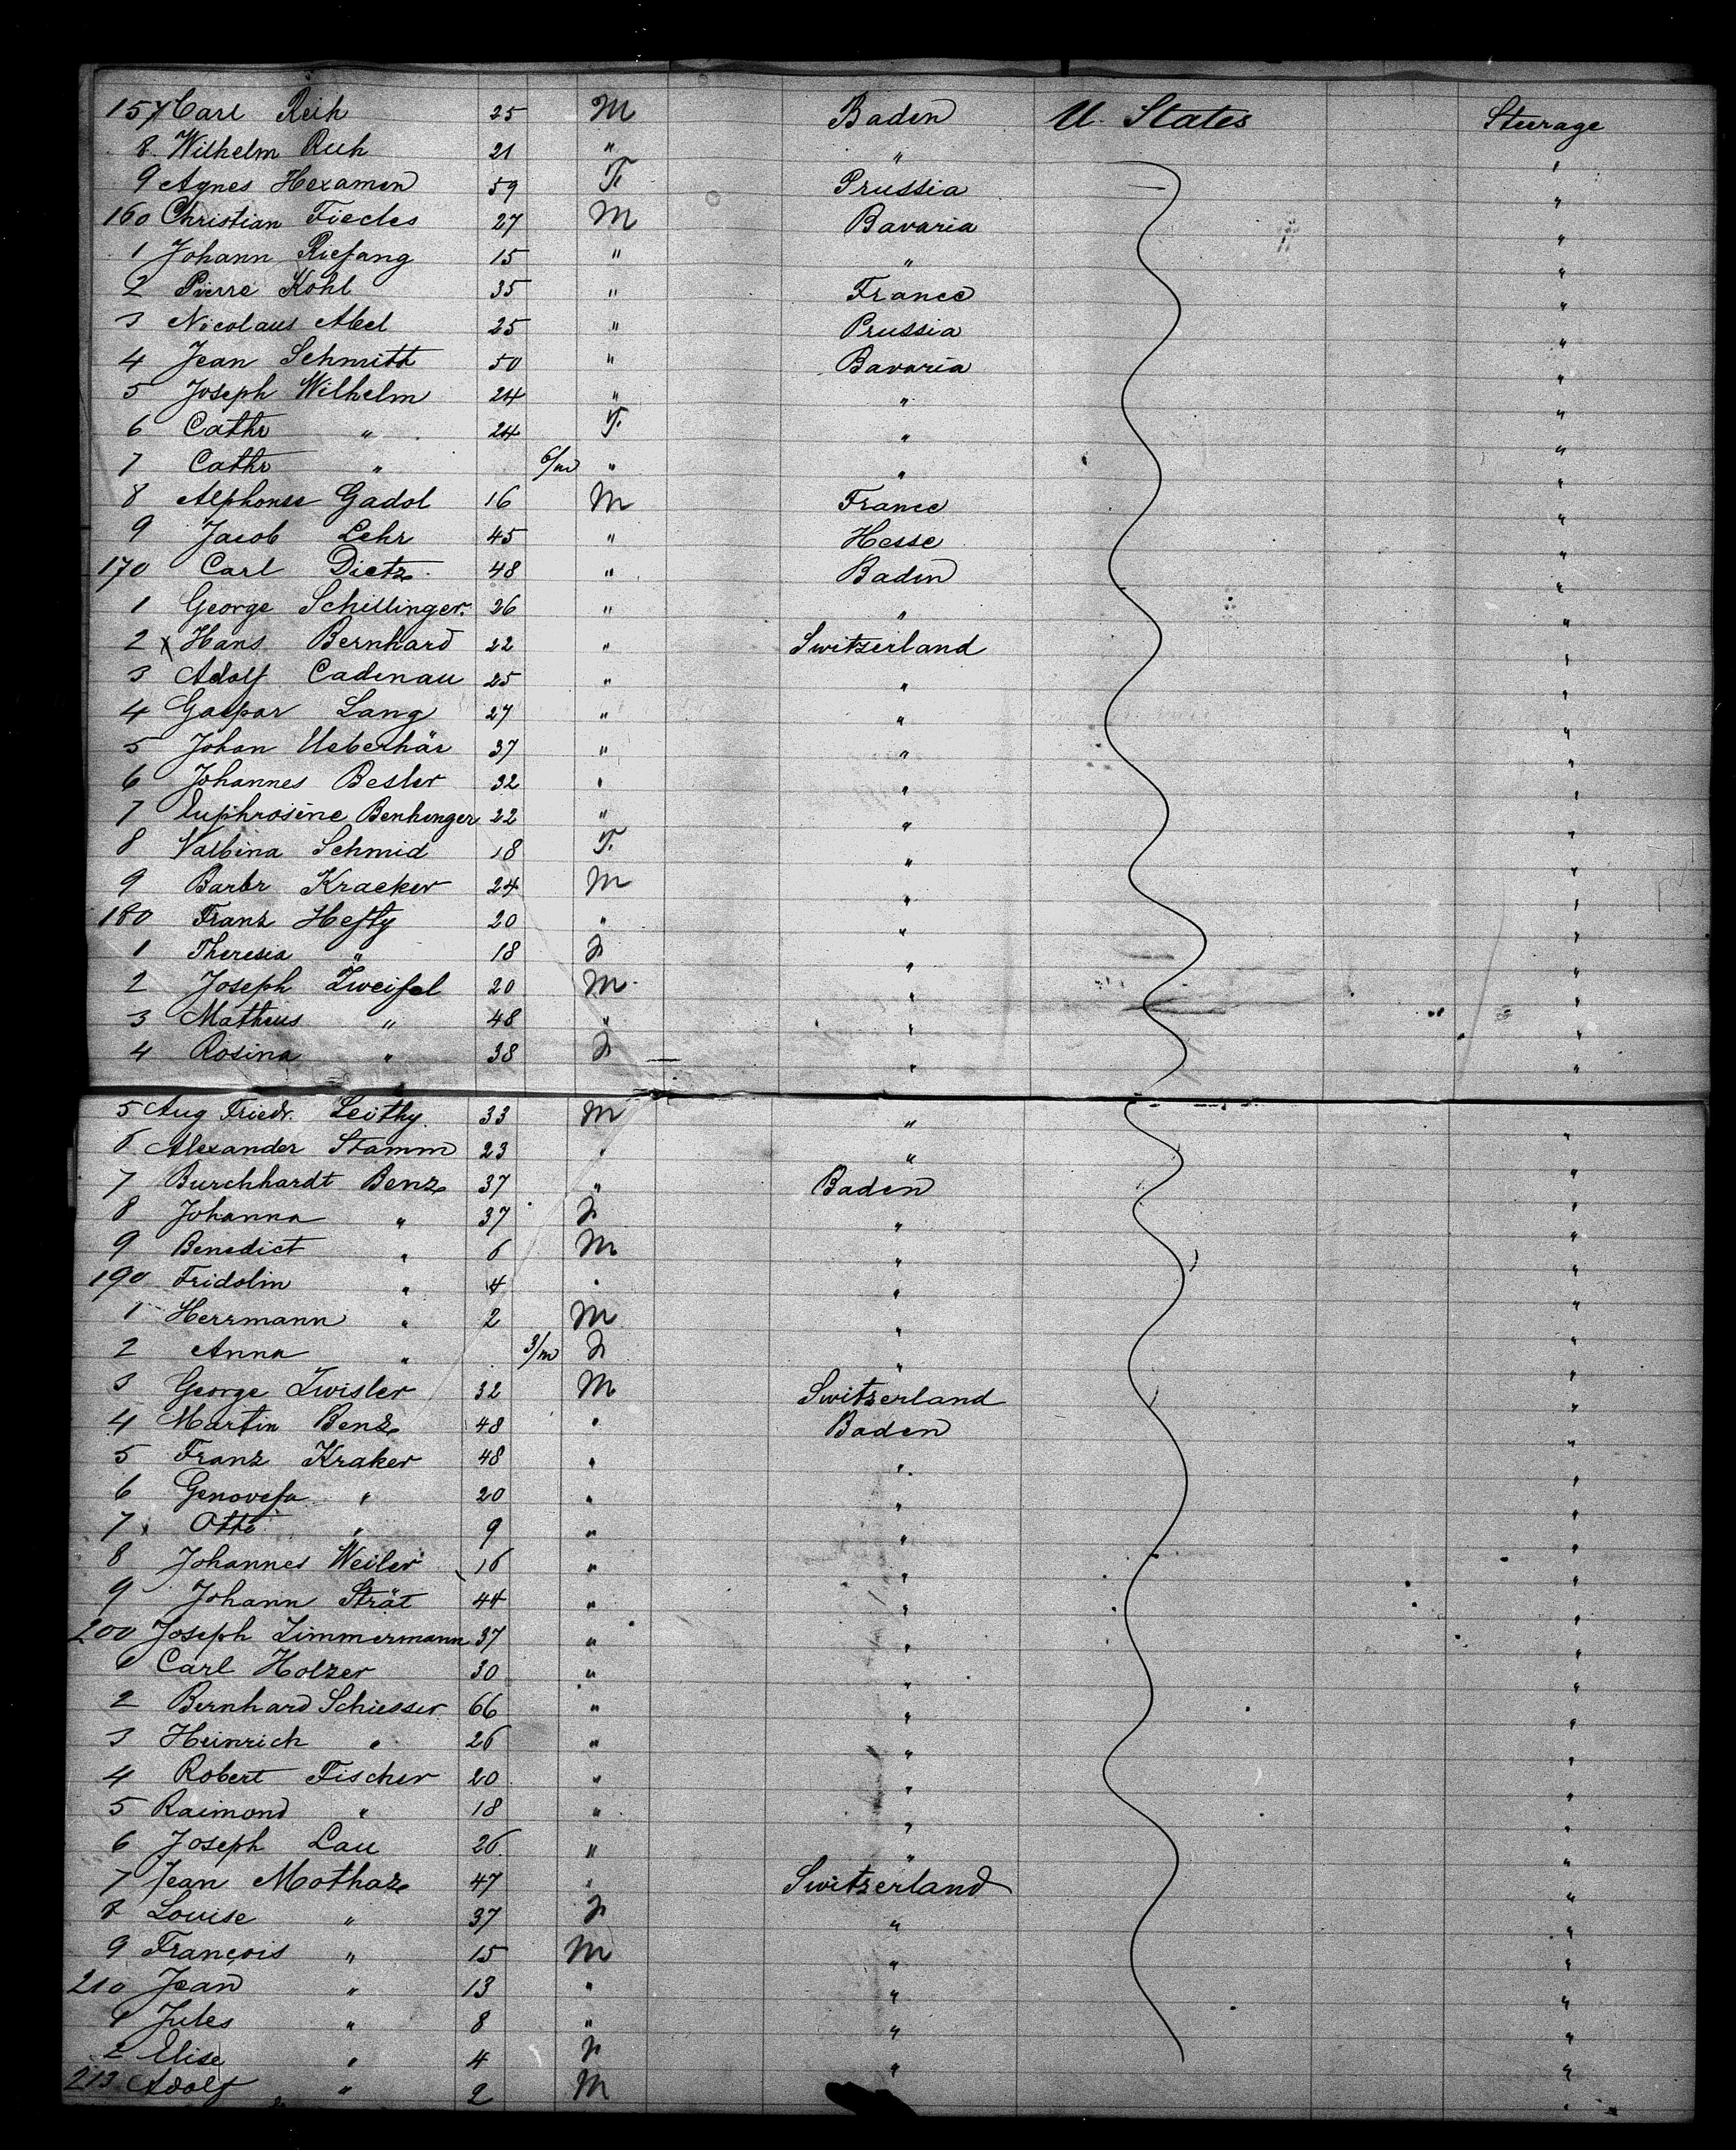 157 Carl Reih 25 M Baden U. States Steerage
8 Wilhelm Ruh 21 " " "
9 Agnes Hexamen 59 F. Prussia "
160 Christian Fiedes 27 M Bavaria "
1 Johann Riefang 15 " " "
2 Pierre Kohl 35 " France "
3 Nicolaus Abel 25 " Prussia "
4 Jean Schmitt 50 " Bavaria "
5 Joseph Wilhelm 24 " " "
6 Cathr " 24 F. " "
7 Cathr " 6/m " " "
8 Alphonse Gadol 16 M France "
9 Jacob Lehr 45 " Hesse "
170 Carl Dietz 48 " Baden "
1 George Schillinger. 26 " " "
2 x Hans Bernhard 22 " Switzerland "
3 Adolf Cadenau 25 " " "
4 Gaspar Lang 27 " " "
5 Johan Ueberhär 37 " " "
6 Johannes Besler 32 " " "
7 Euphrosine Benhenger 22 " " "
8 Valbina Schmid 18 F. " "
9 Barbr Kracker 24 M " "
180 Franz Hefty 20 " " "
1 Theresia " 18 F " "
2 Joseph Zweifel 20 M " "
3 Matheus " 48 " " "
4 Rosina " 38 F " "
5 Aug Friedr. Leithy. 33 M " "
6 Alexander Stamm 23 " " "
7 Burchhardt Benz 37 " Baden "
8 Johanna " 37 F " "
9 Benedict " 6 M " "
190 Fridolin " 4 " " "
1 Herrmann " 2 M " "
2 Anna " 3/m F " "
3 George Zwisler 32 M Switzerland "
4 Martin Benz 48 " Baden "
5 Franz Kraker 48 " " "
6 Genovefa " 20 " " "
7 x Otto " 9 " " "
8 Johannes Weiler 16 " " "
9 Johann Strät 44 " " "
200 Joseph Zimmermann 37 " " "
1 Carl Holzer 30 " " "
2 Bernhard Schiesser 66 " " "
3 Heinrich " 26 " " "
4 Robert Fischer 20 " " "
5 Raimond " 18 " " "
6 Joseph Lau 26 " " "
7 Jean Mathaz 47 " Switzerland "
8 Louise " 37 F " "
9 François " 15 M " "
210 Jean " 13 " " "
1 Jules " 8 " " "
2 Elise " 4 F " "
213 Adolf " 2 M "